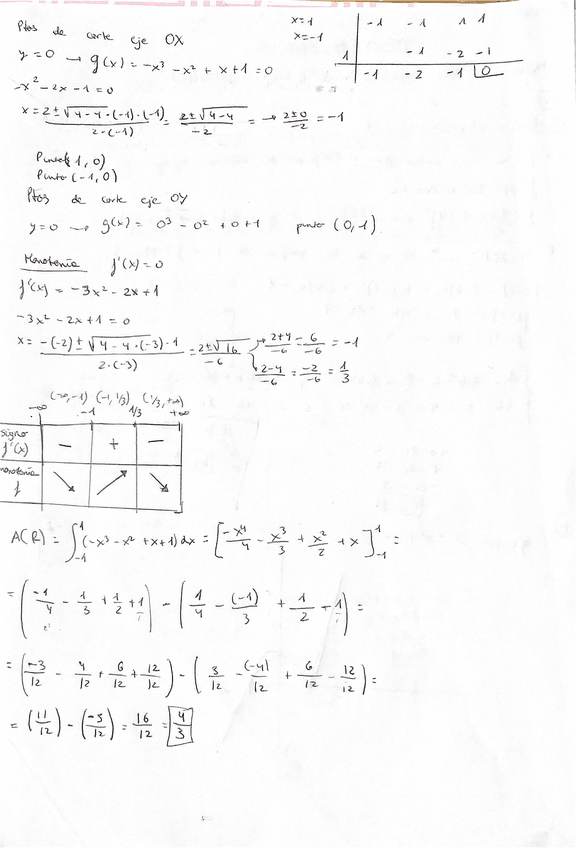 Ptos de corte eje OX
y = 0 → g(x) = -x³ - x² + x + 1 = 0
x = 1
x = -1
-1 -1 1 1
1 -1 -2 -1
-1 -2 -1 0
-x² - 2x - 1 = 0
x = 2 ± √4 - 4·(-1)·(-1) / 2·(-1) = 2 ± √4-4 / -2 = → 2±0 / -2 = -1
Punto (1, 0)
Punto (-1, 0)
Ptos de corte eje OY
y = 0 → g(x) = 0³ - 0² + 0 + 1 punto (0, 1)
Monotonía f'(x) = 0
f'(x) = -3x² - 2x + 1
-3x² - 2x + 1 = 0
x = -(-2) ± √4 - 4·(-3)·1 / 2·(-3) = 2 ± √16 / -6 → 2+4 / -6 = 6 / -6 = -1
2-4 / -6 = -2 / -6 = 1/3
(-∞, -1) (-1, 1/3) (1/3, +∞)
-∞ -1 1/3 +∞
signo f'(x) - + -
monotonía f ↘ ↗ ↘
A(R) = ∫₋₁¹ (-x³ - x² + x + 1) dx = [-x⁴/4 - x³/3 + x²/2 + x]₋₁¹ =
= (-1/4 - 1/3 + 1/2 + 1) - (1/4 - (-1)/3 + 1/2 - 1) =
= (-3/12 - 4/12 + 6/12 + 12/12) - (3/12 - (-4)/12 + 6/12 - 12/12) =
= (11/12) - (-5/12) = 16/12 = 4/3